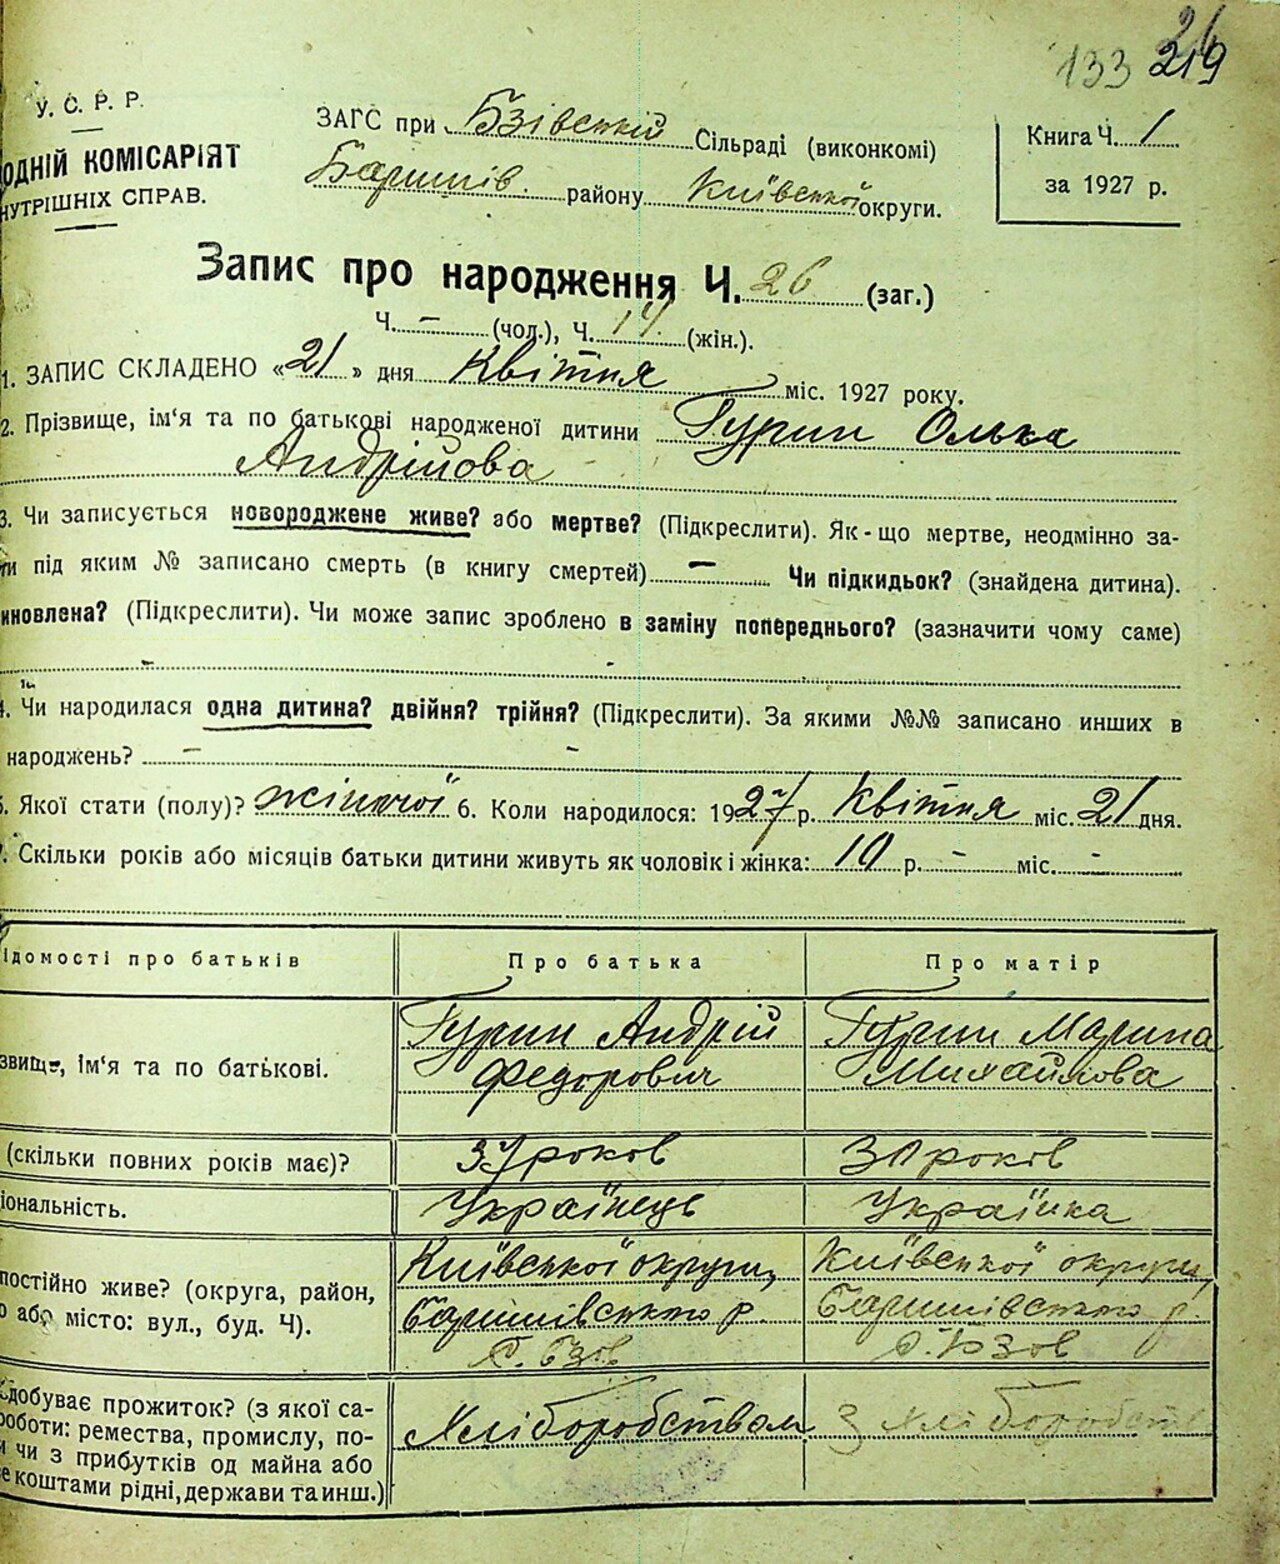 133 219
26
У. С. Р. Р.
ОДНІЙ КОМІСАРІЯТ
НУТРІШНІХ СПРАВ.
ЗАГС при Бзівській Сільраді (виконкомі)
Баришів. району Київської округи.
Книга Ч. 1
за 1927 р.
Запис про народження Ч. 26 (заг.)
Ч. – (чол.), Ч. 14 (жін.).
1. ЗАПИС СКЛАДЕНО «21» дня Квітня міс. 1927 року.
2. Прізвище, ім'я та по батькові народженої дитини Гурин Олька
Андрійова
3. Чи записується новороджене живе? або мертве? (Підкреслити). Як-що мертве, неодмінно за-
ти під яким № записано смерть (в книгу смертей) – Чи підкидьок? (знайдена дитина).
иновлена? (Підкреслити). Чи може запис зроблено в заміну попереднього? (зазначити чому саме)
4. Чи народилася одна дитина? двійня? трійня? (Підкреслити). За якими №№ записано инших в
народжень? – –
5. Якої стати (полу)? жіночої 6. Коли народилося: 1927 р. Квітня міс. 21 дня.
7. Скільки років або місяців батьки дитини живуть як чоловік і жінка: 10 р. – міс. –
ідомості про батьків Про батька Про матір
звище, ім'я та по батькові. Гурин Андрій Гурин Марина
Федорович Михайлова
(скільки повних років має)? 37 років 30 років
іональність. Українець Українка
постійно живе? (округа, район, Київської округи, Київської округи,
о або місто: вул., буд. Ч). Баришівського р. Баришівського р.
с. Бзов с. Бзов
здобуває прожиток? (з якої са-
роботи: ремества, промислу, по- Хліборобством З хліборобств
и чи з прибутків од майна або
е коштами рідні, держави та инш.)